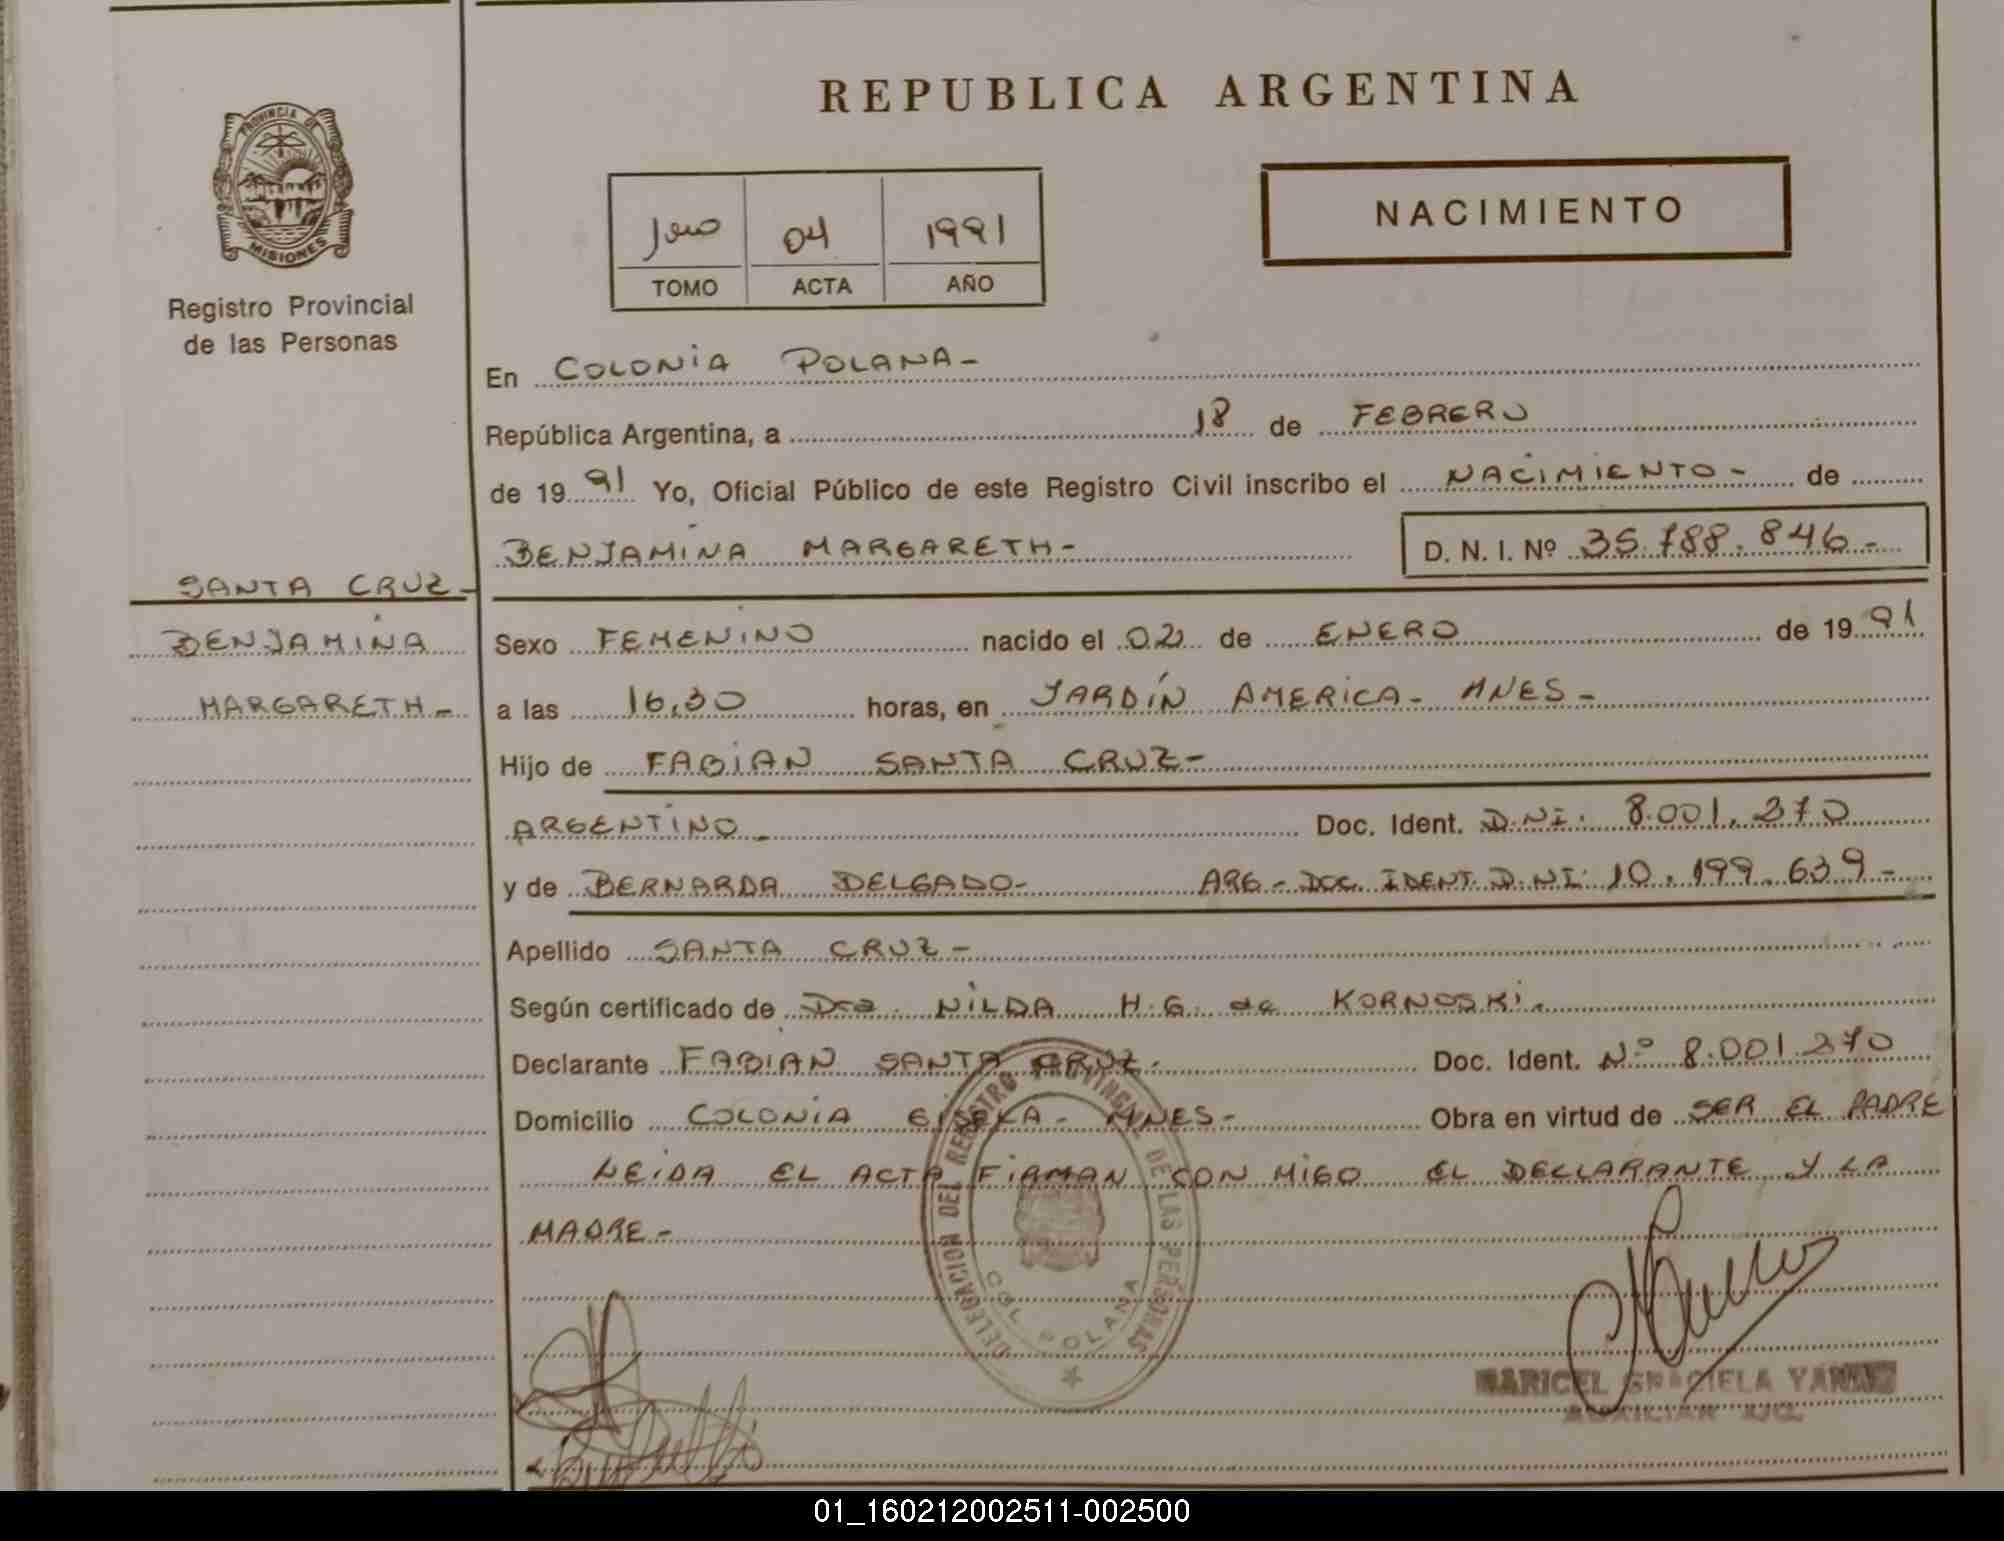 REPUBLICA ARGENTINA
PROVINCIA DE
MISIONES
Registro Provincial
de las Personas
NACIMIENTO
04 1991
TOMO ACTA AÑO
En COLONIA POLANA-
República Argentina, a 18 de FEBRERO
de 1991 Yo, Oficial Público de este Registro Civil inscribo el NACIMIENTO- de
BENJAMINA MARGARETH- D. N. I. Nº 35.788.846-
SANTA CRUZ-
BENJAMINA
MARGARETH-
Sexo FEMENINO nacido el 02 de ENERO de 1991
a las 16,30 horas, en JARDÍN AMERICA- MNES-
Hijo de FABIAN SANTA CRUZ-
ARGENTINO- Doc. Ident. D.NI. 8.001.270
y de BERNARDA DELGADO- ARG- DOC. IDENT. D.NI. 10.199.639-
Apellido SANTA CRUZ-
Según certificado de Dra. NILDA H.G. de KORNOSKI.
Declarante FABIAN SANTA CRUZ- Doc. Ident. Nº 8.001.270
Domicilio COLONIA GISELA- MNES- Obra en virtud de SER EL PADRE
LEIDA EL ACTA FIRMAN CON MIGO EL DECLARANTE Y LA
MADRE-
DELEGACION DEL REGISTRO PROVINCIAL DE LAS PERSONAS
COL. POLANA
MARICEL GRACIELA
AUXILIAR
01_160212002511-002500